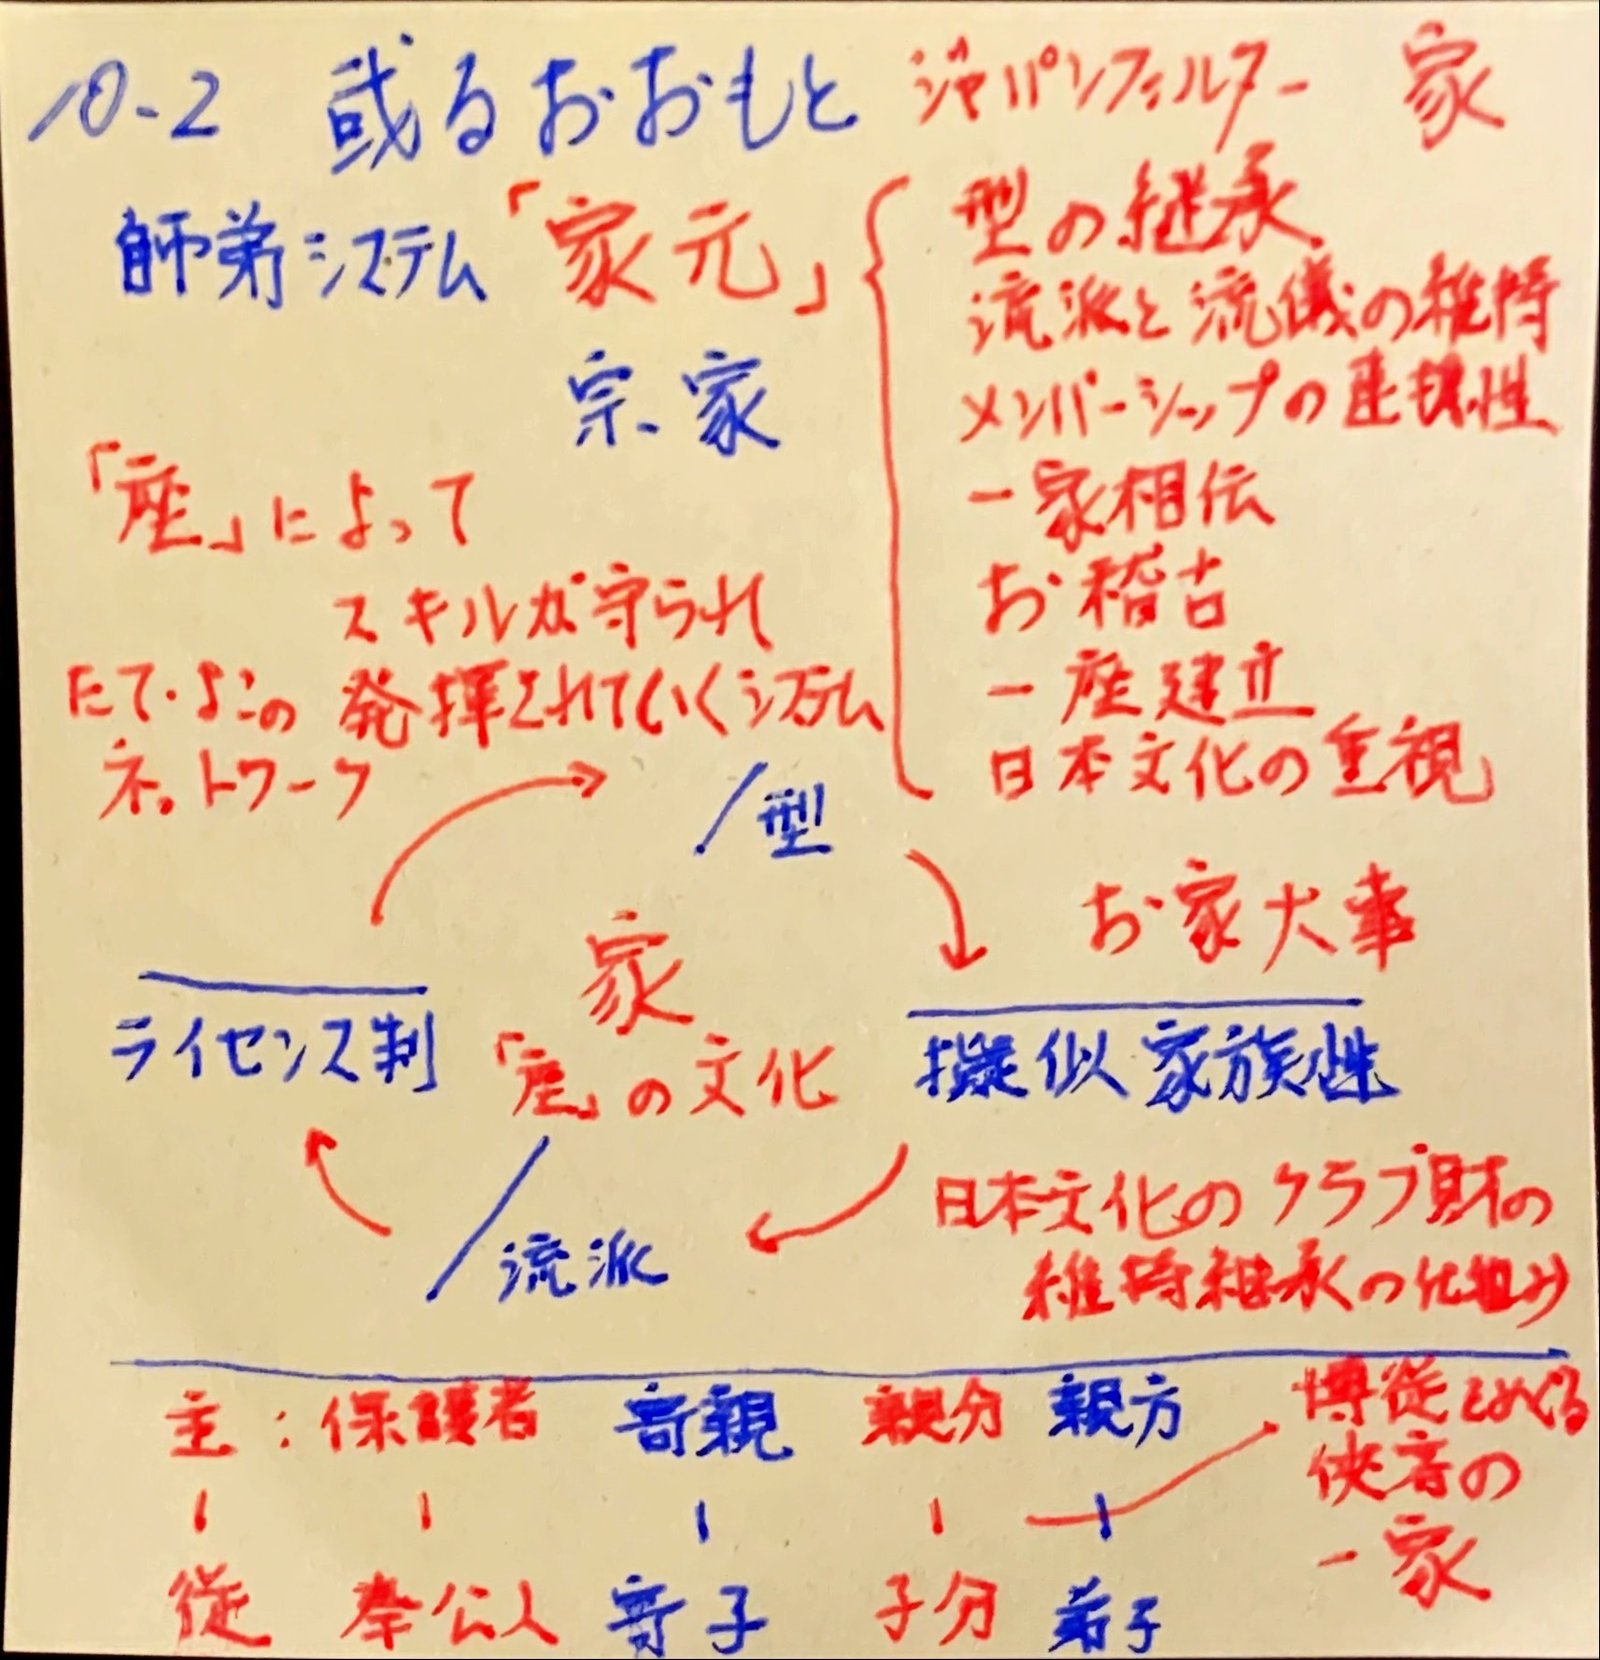 10-2 或るおおもと ジャパンフィルター 家
師弟システム「家元」
宗家
型の継承
流派と流儀の維持
メンバーシップの
一家相伝
お稽古
一座建立
日本文化の重視
「座」によって
スキルが守られ
たて・よこの 発揮されていくシステム
ネットワーク
型
お家大事
ライセンス制
家
「座」の文化
擬似家族性
流派
日本文化のクラブ財の
維持継承の仕組み
主:保護者 寄親 親分 親方
従 奉公人 寄子 子分 弟子
博徒をめぐる
侠客の
一家